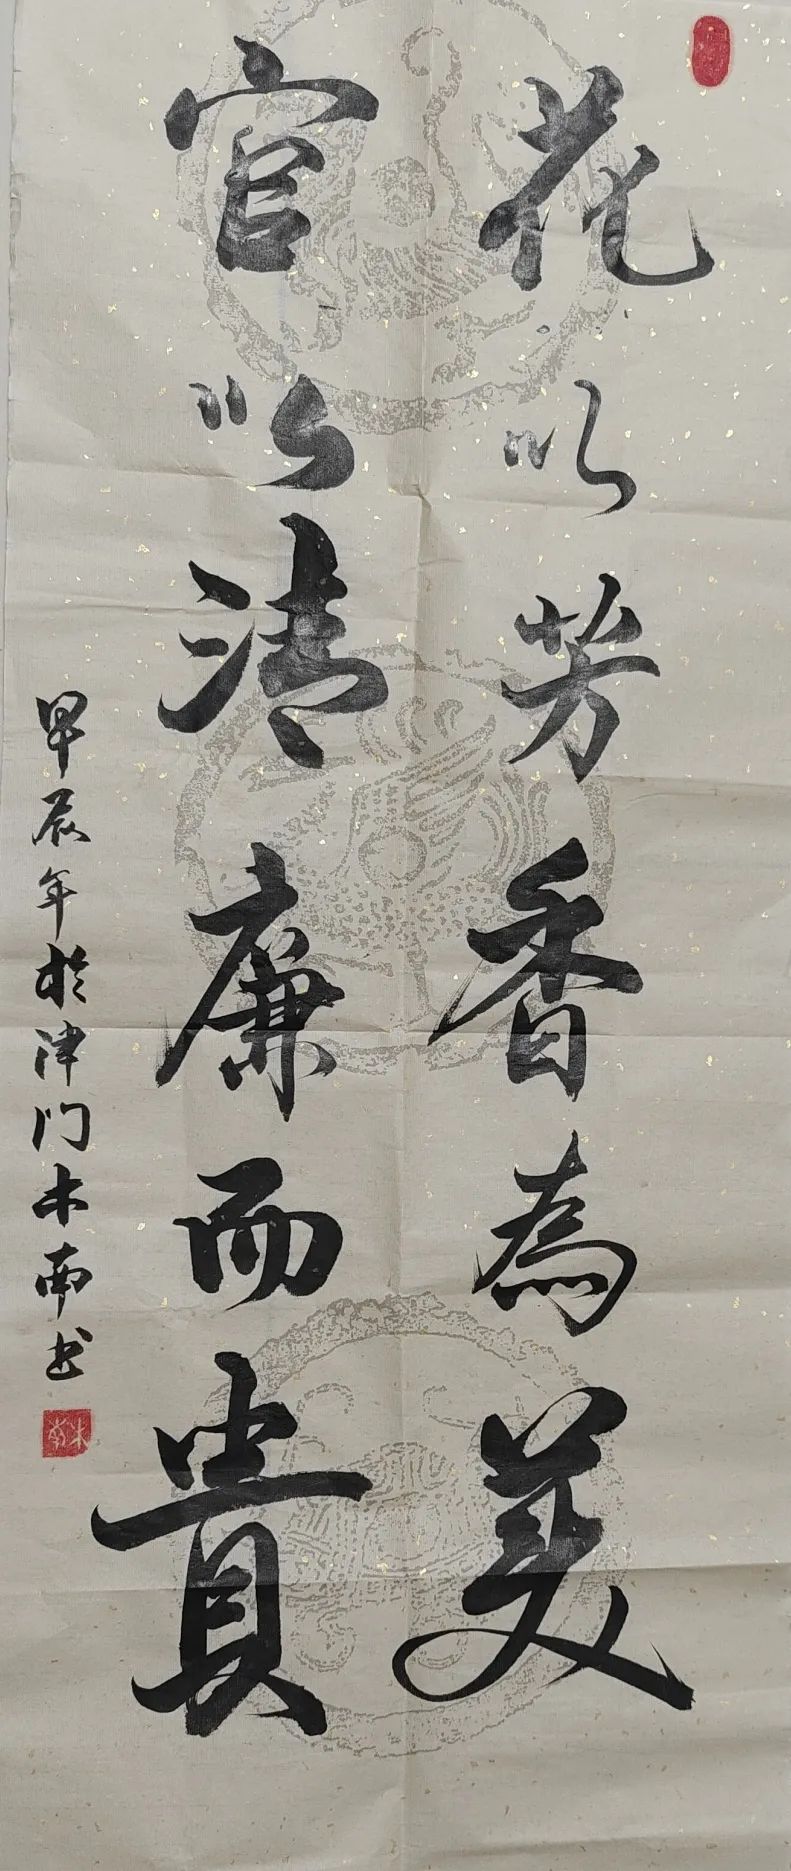 花以芳香為美
官以清廉而貴
甲辰年於津门木南书
木南